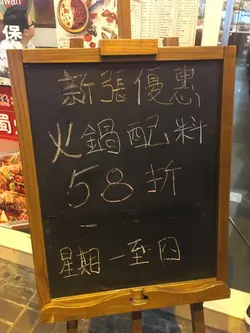 新張優惠
火鍋配料
58折
星期一至四